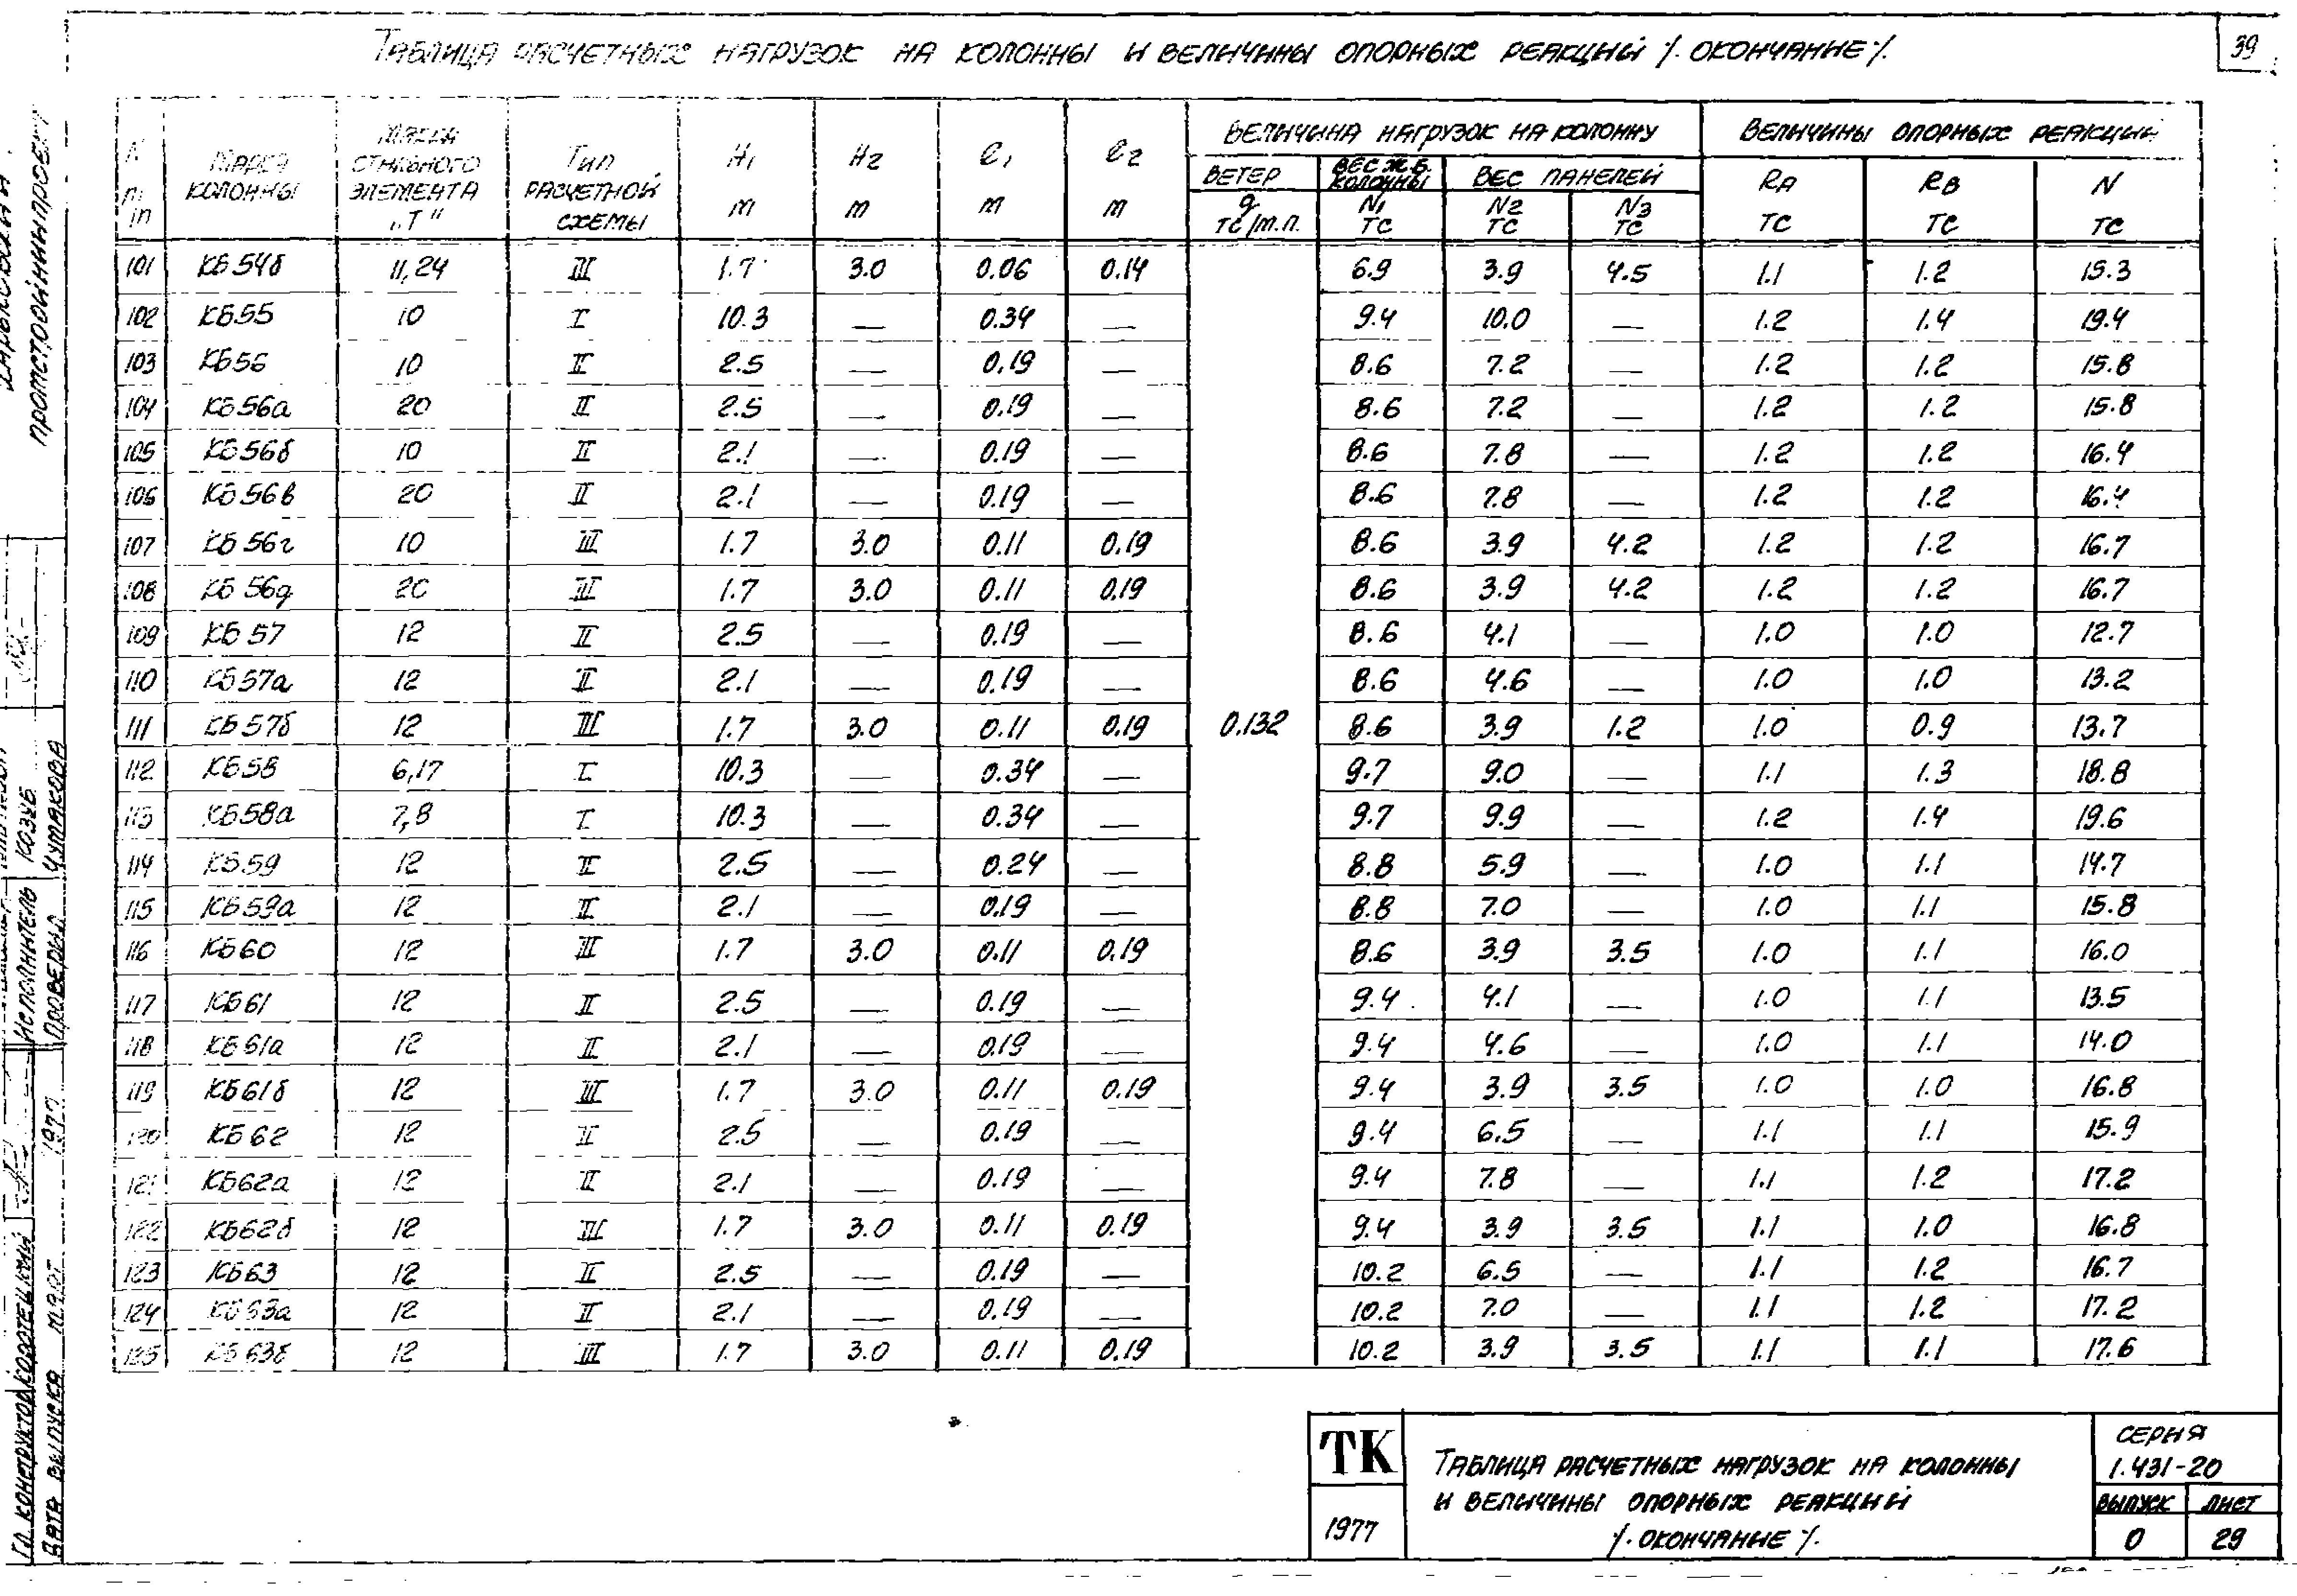 Таблица расчетных нагрузок на колонны и величины опорных реакций /. окончание /.
39
N п/п | Марка колонны | Масса стального элемента „Т" | Тип расчетной схемы | H1 м | H2 м | e1 м | e2 м | Величина нагрузок на колонну | Величины опорных реакций
Ветер q тс/м.п. | Вес ж.б. колонны N1 тс | Вес панелей N2 тс | N3 тс | RA тс | RB тс | N тс
101 КБ54б 11,24 III 1.7 3.0 0.06 0.14 6.9 3.9 4.5 1.1 1.2 15.3
102 КБ55 10 I 10.3 — 0.34 — 9.4 10.0 — 1.2 1.4 19.4
103 КБ56 10 II 2.5 — 0.19 — 8.6 7.2 — 1.2 1.2 15.8
104 КБ56а 20 II 2.5 — 0.19 — 8.6 7.2 — 1.2 1.2 15.8
105 КБ56б 10 II 2.1 — 0.19 — 8.6 7.8 — 1.2 1.2 16.4
106 КБ56в 20 II 2.1 — 0.19 — 8.6 7.8 — 1.2 1.2 16.4
107 КБ56г 10 III 1.7 3.0 0.11 0.19 8.6 3.9 4.2 1.2 1.2 16.7
108 КБ56д 20 III 1.7 3.0 0.11 0.19 8.6 3.9 4.2 1.2 1.2 16.7
109 КБ57 12 II 2.5 — 0.19 — 8.6 4.1 — 1.0 1.0 12.7
110 КБ57а 12 II 2.1 — 0.19 — 8.6 4.6 — 1.0 1.0 13.2
111 КБ57б 12 III 1.7 3.0 0.11 0.19 0.132 8.6 3.9 1.2 1.0 0.9 13.7
112 КБ58 6,17 I 10.3 — 0.34 — 9.7 9.0 — 1.1 1.3 18.8
113 КБ58а 7,8 I 10.3 — 0.34 — 9.7 9.9 — 1.2 1.4 19.6
114 КБ59 12 II 2.5 — 0.24 — 8.8 5.9 — 1.0 1.1 14.7
115 КБ59а 12 II 2.1 — 0.19 — 8.8 7.0 — 1.0 1.1 15.8
116 КБ60 12 III 1.7 3.0 0.11 0.19 8.6 3.9 3.5 1.0 1.1 16.0
117 КБ61 12 II 2.5 — 0.19 — 9.4 4.1 — 1.0 1.1 13.5
118 КБ61а 12 II 2.1 — 0.19 — 9.4 4.6 — 1.0 1.1 14.0
119 КБ61б 12 III 1.7 3.0 0.11 0.19 9.4 3.9 3.5 1.0 1.0 16.8
120 КБ62 12 II 2.5 — 0.19 — 9.4 6.5 — 1.1 1.1 15.9
121 КБ62а 12 II 2.1 — 0.19 — 9.4 7.8 — 1.1 1.2 17.2
122 КБ62б 12 III 1.7 3.0 0.11 0.19 9.4 3.9 3.5 1.1 1.0 16.8
123 КБ63 12 II 2.5 — 0.19 — 10.2 6.5 — 1.1 1.2 16.7
124 КБ63а 12 II 2.1 — 0.19 — 10.2 7.0 — 1.1 1.2 17.2
125 КБ63б 12 III 1.7 3.0 0.11 0.19 10.2 3.9 3.5 1.1 1.1 17.6
ТК
1977
Таблица расчетных нагрузок на колонны
и величины опорных реакций
/. окончание /.
Серия
1.431-20
Выпуск Лист
0 29
Харьковский
Промстройниипроект
Исполнитель Козуб
Проверил Чумакова
Гл. конструктор Коротецкий
Дата выпуска март 1977